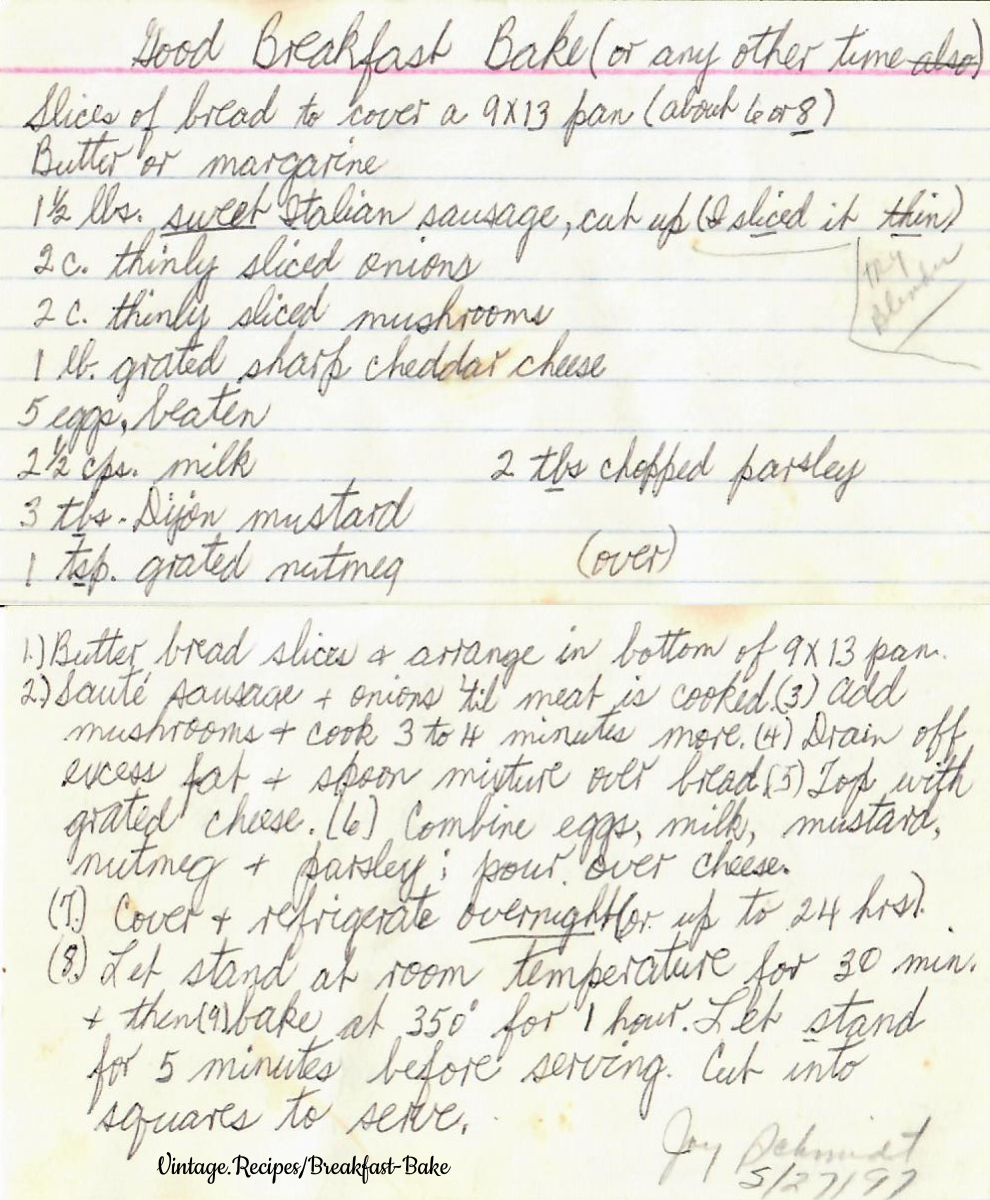 Good Breakfast Bake (or any other time also)
Slices of bread to cover a 9X13 pan (about 6 or 8)
Butter or margarine
1½ lbs. sweet Italian sausage, cut up (I sliced it thin)
try
Blender
2 c. thinly sliced onions
2 c. thinly sliced mushrooms
1 lb. grated sharp cheddar cheese
5 eggs, beaten
2½ cps. milk
2 tbs chopped parsley
3 tbs. Dijon mustard
1 tsp. grated nutmeg
(over)
1.) Butter bread slices & arrange in bottom of 9X13 pan.
2.) Sauté sausage + onions 'til meat is cooked. (3) Add
mushrooms + cook 3 to 4 minutes more. (4) Drain off
excess fat + spoon mixture over bread. (5) Top with
grated cheese. (6) Combine eggs, milk, mustard,
nutmeg + parsley; pour over cheese.
(7.) Cover + refrigerate overnight (or up to 24 hrs).
(8.) Let stand at room temperature for 30 min.
+ then (9) bake at 350° for 1 hour. Let stand
for 5 minutes before serving. Cut into
squares to serve.
Joy Schmidt
5/27/97
Vintage.Recipes/Breakfast-Bake